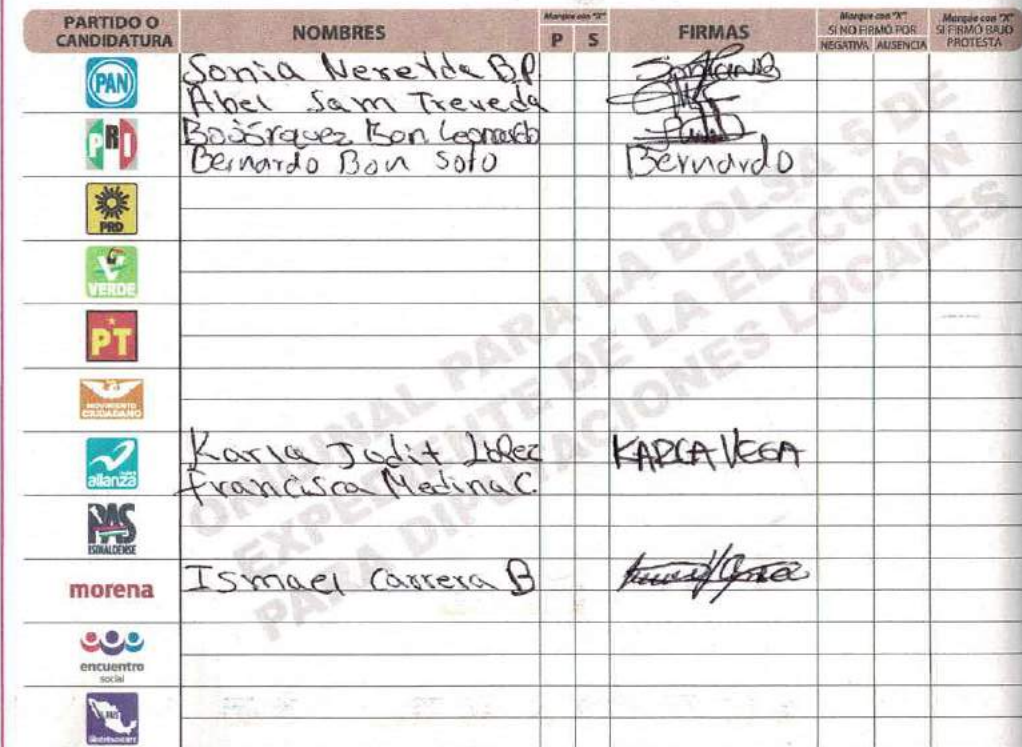 PARTIDO O CANDIDATURA
NOMBRES
Marque con "X"
P S
FIRMAS
Marque con "X" SI NO FIRMÓ POR
NEGATIVA AUSENCIA
Marque con "X" SI FIRMÓ BAJO PROTESTA
PAN
Sonia Nereyda B.P
Abel Sam Treveda
PRI
Bojórquez Bon Leonardo
Bernardo Bon Soto Bernardo
PRD
VERDE
PT
MOVIMIENTO CIUDADANO
nueva alianza
Karla Judit López KARLA VEGA
Francisca Medina C.
PAS
SINALOENSE
morena
Ismael Carrera B
encuentro social
ORIGINAL PARA LA BOLSA 5 DE
EXPEDIENTE DE LA ELECCIÓN
PARA DIPUTACIONES LOCALES